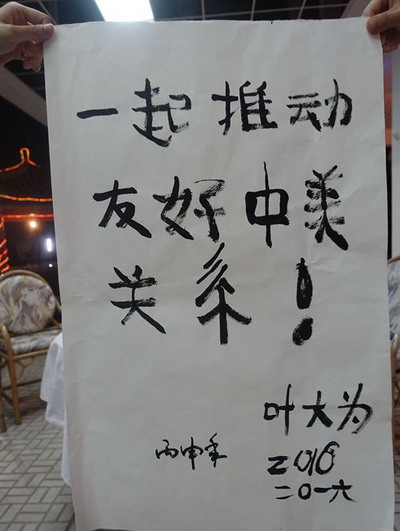 一起推动
友好中美
关系！
叶大为
丙申年
2016
二〇一六